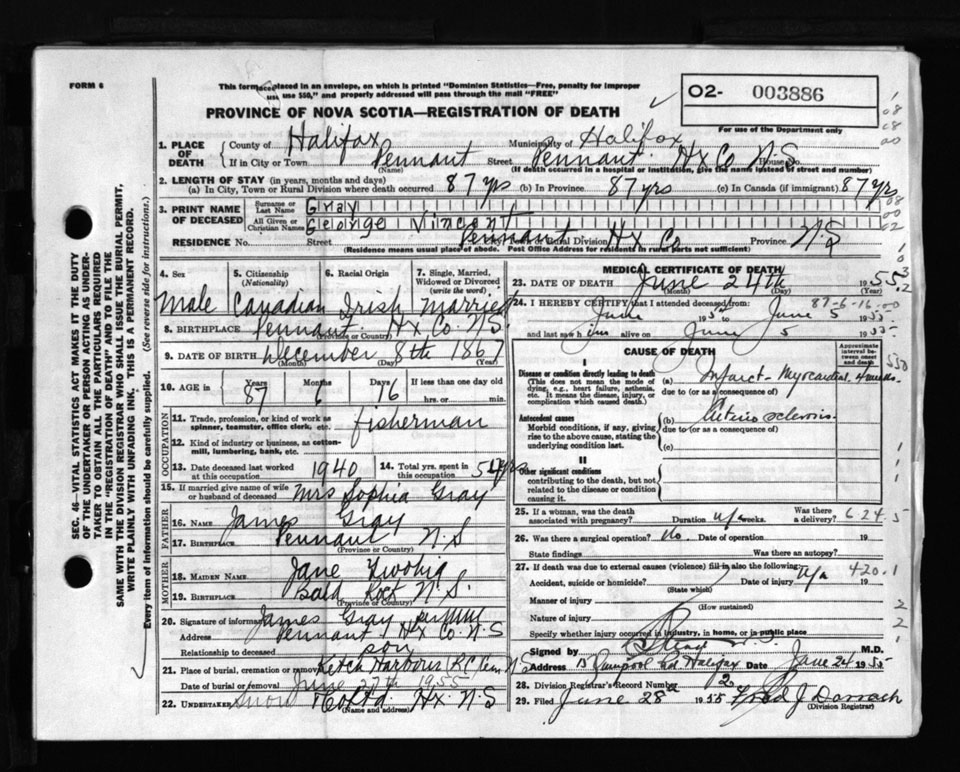 FORM 6
This form, placed in an envelope, on which is printed "Dominion Statistics—Free, penalty for improper
use $50," and properly addressed will pass through the mail "FREE"
O2- 003886
For use of the Department only
PROVINCE OF NOVA SCOTIA—REGISTRATION OF DEATH
1. PLACE OF DEATH
County of Halifax Municipality of Halifax
If in City or Town Pennant Street Pennant Hx Co N.S House No.
(Name) (If death occurred in a hospital or institution, give the name instead of street and number)
2. LENGTH OF STAY (in years, months and days)
(a) In City, Town or Rural Division where death occurred 87 yrs (b) In Province 87 yrs (c) In Canada (if immigrant) 87 yrs
3. PRINT NAME OF DECEASED
Surname or Last Name Gray
All Given or Christian Names George Vincent
RESIDENCE No. Street Pennant City, Town or Rural Division Hx Co Province N.S
(Residence means usual place of abode. Post Office Address for residents in rural parts not sufficient)
4. Sex
Male
5. Citizenship
(Nationality)
Canadian
6. Racial Origin
Irish
7. Single, Married,
Widowed or Divorced
(write the word)
Married
8. BIRTHPLACE Pennant Hx Co. N.S.
(Province or Country)
9. DATE OF BIRTH December 8th 1867
(Month) (Day) (Year)
10. AGE in
Years 87
Months 6
Days 16
If less than one day old
hrs. or min.
OCCUPATION
11. Trade, profession, or kind of work as
spinner, teamster, office clerk, etc. fisherman
12. Kind of industry or business, as cotton-
mill, lumbering, bank, etc.
13. Date deceased last worked
at this occupation 1940
14. Total yrs. spent in
this occupation 50 yrs
15. If married give name of wife
or husband of deceased Mrs Sophia Gray
FATHER
16. NAME James Gray
17. Birthplace Pennant N.S
(Province or Country)
MOTHER
18. MAIDEN NAME Jane
19. BIRTHPLACE Bald Rock N.S.
(Province or Country)
20. Signature of informant James Gray per
Address Pennant Hx Co. N.S
Relationship to deceased son
21. Place of burial, cremation or removal Ketch Harbour R.C. Cem N.S
Date of burial or removal June 27th 1955
22. UNDERTAKER Snow Co Ltd Hx. N.S
(Name and address)
MEDICAL CERTIFICATE OF DEATH
23. DATE OF DEATH June 24th 1955
(Month) (Day)
24. I HEREBY CERTIFY that I attended deceased from: 87-6-16-00
June 1955 to June 5 1955
and last saw him alive on June 5 1955
CAUSE OF DEATH
Approximate
interval be-
tween onset
and death
I
Disease or condition directly leading to death
(This does not mean the mode of
dying, e.g., heart failure, asthenia,
etc. It means the disease, injury, or
complication which caused death.)
(a) Infarct - Myocardial
due to (or as a consequence of)
Antecedent causes
Morbid conditions, if any, giving
rise to the above cause, stating the
underlying condition last.
(b) Arteriosclerosis
due to (or as a consequence of)
(c)
II
Other significant conditions
contributing to the death, but not
related to the disease or condition
causing it.
25. If a woman, was the death
associated with pregnancy? Duration n/a weeks. Was there
a delivery? 6 24 5
26. Was there a surgical operation? No Date of operation 19
State findings Was there an autopsy?
27. If death was due to external causes (violence) fill in also the following: n/a 420.1
Accident, suicide or homicide? Date of injury 19
(State which)
Manner of injury
(How sustained)
Nature of injury
Specify whether injury occurred in industry, in home, or in public place
Signed by M.D.
Address Halifax Date June 24 1955
28. Division Registrar's Record Number 2
29. Filed June 28th 1955 Fred J Darrach
(Division Registrar)
SEC. 46—VITAL STATISTICS ACT MAKES IT THE DUTY
OF THE UNDERTAKER OR PERSON ACTING AS UNDER-
TAKER TO OBTAIN ALL THE PARTICULARS REQUIRED
IN THE "REGISTRATION OF DEATH" AND TO FILE THE
SAME WITH THE DIVISION REGISTRAR WHO SHALL ISSUE THE BURIAL PERMIT.
WRITE PLAINLY WITH UNFADING INK. THIS IS A PERMANENT RECORD.
Every item of information should be carefully supplied. (See reverse side for instructions.)